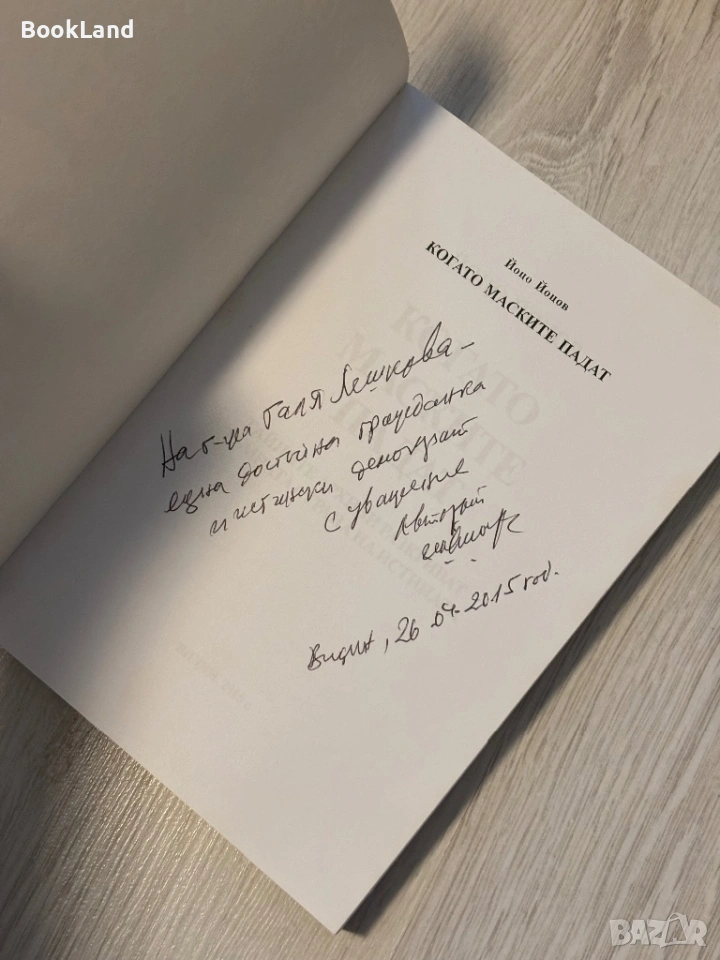 BookLand
Йоцо Йоцов
КОГАТО МАСКИТЕ ПАДАТ
КОГАТО
МАСКИТЕ
ПАДАТ
На г-жа Галя Лешкова –
една достойна гражданка
и истински демократ
с уважение
Авторът
Видин, 26 04.2015 год.
BAZAR